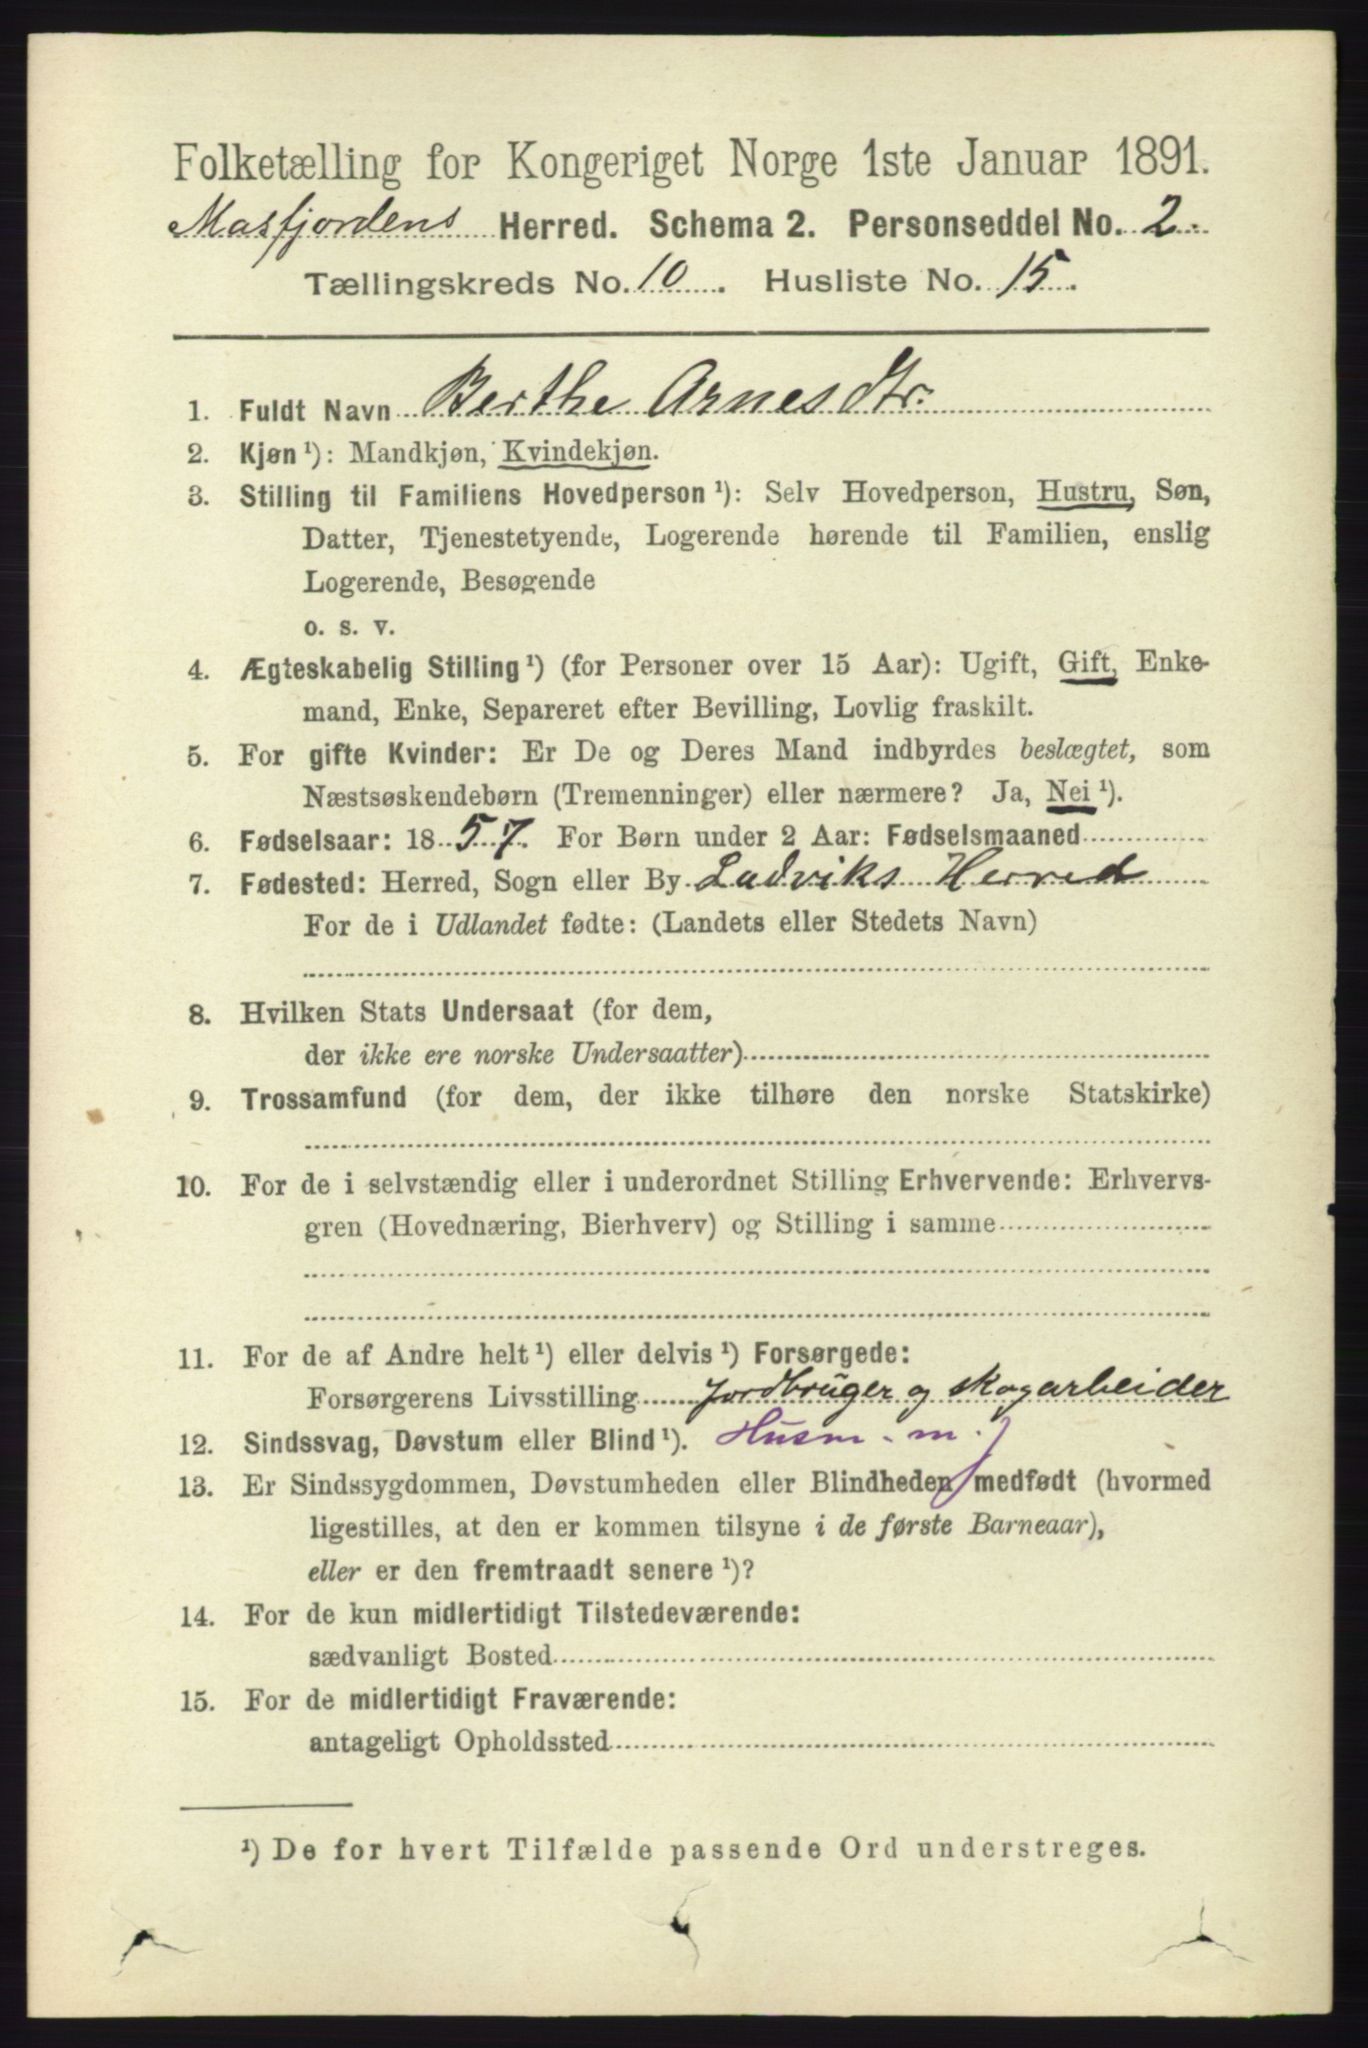 Folketælling for Kongeriget Norge 1ste Januar 1891.
Masfjordens Herred. Schema 2. Personseddel No. 2.
Tællingskreds No. 10. Husliste No. 15.
1. Fuldt Navn Berthe Arnesdtr.
2. Kjøn ¹): Mandkjøn, Kvindekjøn.
3. Stilling til Familiens Hovedperson ¹): Selv Hovedperson, Hustru, Søn,
Datter, Tjenestetyende, Logerende hørende til Familien, enslig
Logerende, Besøgende
o. s. v.
4. Ægteskabelig Stilling ¹) (for Personer over 15 Aar): Ugift, Gift, Enke-
mand, Enke, Separeret efter Bevilling, Lovlig fraskilt.
5. For gifte Kvinder: Er De og Deres Mand indbyrdes beslægtet, som
Næstsøskendebørn (Tremenninger) eller nærmere? Ja, Nei ¹).
6. Fødselsaar: 1857. For Børn under 2 Aar: Fødselsmaaned
7. Fødested: Herred, Sogn eller By Ladviks Herred
For de i Udlandet fødte: (Landets eller Stedets Navn)
8. Hvilken Stats Undersaat (for dem,
der ikke ere norske Undersaatter)
9. Trossamfund (for dem, der ikke tilhøre den norske Statskirke)
10. For de i selvstændig eller i underordnet Stilling Erhvervende: Erhvervs-
gren (Hovednæring, Bierhverv) og Stilling i samme
11. For de af Andre helt ¹) eller delvis ¹) Forsørgede:
Forsørgerens Livsstilling Jordbruger og skogarbeider
12. Sindssvag, Døvstum eller Blind ¹). Husm. m. j
13. Er Sindssygdommen, Døvstumheden eller Blindheden medfødt (hvormed
ligestilles, at den er kommen tilsyne i de første Barneaar),
eller er den fremtraadt senere ¹)?
14. For de kun midlertidigt Tilstedeværende:
sædvanligt Bosted
15. For de midlertidigt Fraværende:
antageligt Opholdssted
¹) De for hvert Tilfælde passende Ord understreges.